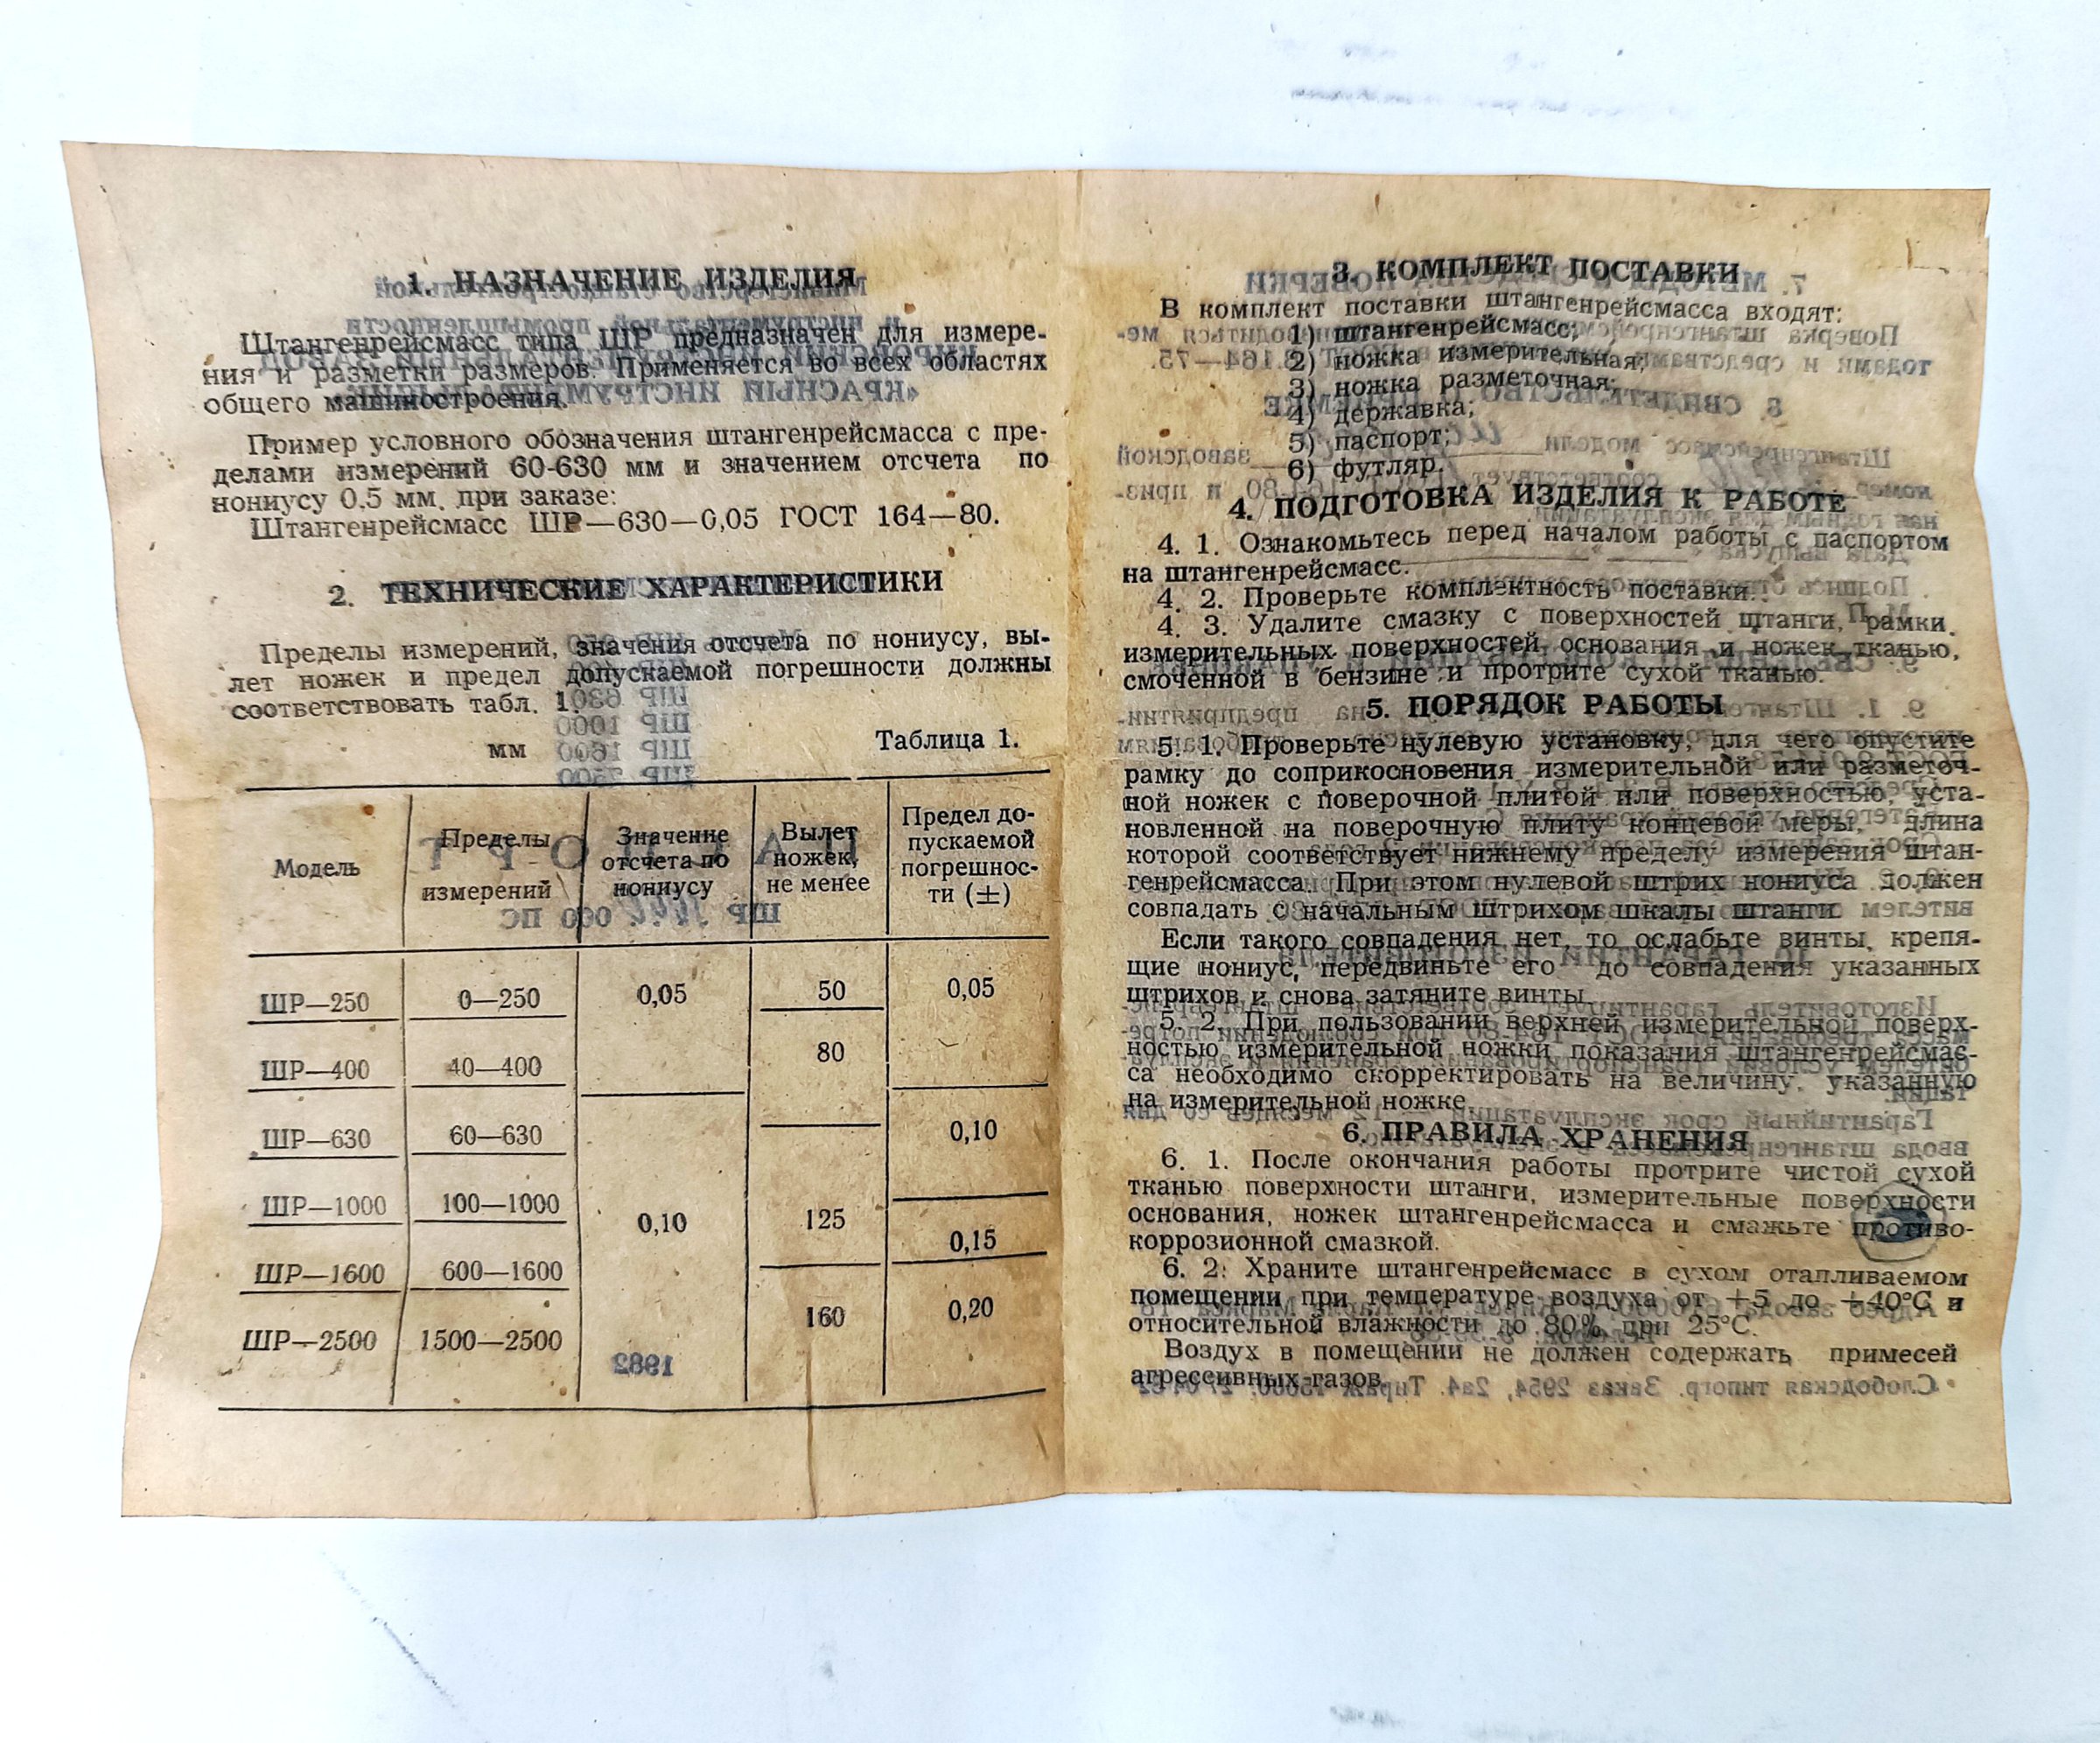 1. НАЗНАЧЕНИЕ ИЗДЕЛИЯ
Штангенрейсмасс типа ШР предназначен для измере-
ния и разметки размеров. Применяется во всех областях
общего машиностроения.
Пример условного обозначения штангенрейсмасса с пре-
делами измерений 60-630 мм и значением отсчета по
нониусу 0.5 мм. при заказе:
Штангенрейсмасс ШР—630—0,05 ГОСТ 164—80.
2. ТЕХНИЧЕСКИЕ ХАРАКТЕРИСТИКИ
Пределы измерений, значения отсчета по нониусу, вы-
лет ножек и предел допускаемой погрешности должны
соответствовать табл. 1.
мм Таблица 1.
Модель
Пределы
измерений
Значение
отсчета по
нониусу
Вылет
ножек,
не менее
Предел до-
пускаемой
погрешнос-
ти (±)
ШР—250 0—250 0,05 50 0,05
ШР—400 40—400 80
ШР—630 60—630 0,10
ШР—1000 100—1000 0,10 125
ШР—1600 600—1600 0,15
ШР—2500 1500—2500 160 0,20
3. КОМПЛЕКТ ПОСТАВКИ
В комплект поставки штангенрейсмасса входят:
1) штангенрейсмасс;
2) ножка измерительная;
3) ножка разметочная;
4) державка;
5) паспорт;
6) футляр.
4. ПОДГОТОВКА ИЗДЕЛИЯ К РАБОТЕ
4. 1. Ознакомьтесь перед началом работы с паспортом
на штангенрейсмасс.
4. 2. Проверьте комплектность поставки.
4. 3. Удалите смазку с поверхностей штанги, рамки
измерительных поверхностей основания и ножек тканью,
смоченной в бензине и протрите сухой тканью.
5. ПОРЯДОК РАБОТЫ
5. 1. Проверьте нулевую установку, для чего опустите
рамку до соприкосновения измерительной или разметоч-
ной ножек с поверочной плитой или поверхностью, уста-
новленной на поверочную плиту концевой меры, длина
которой соответствует нижнему пределу измерения штан-
генрейсмасса. При этом нулевой штрих нониуса должен
совпадать с начальным штрихом шкалы штанги.
Если такого совпадения нет, то ослабьте винты, крепя-
щие нониус, передвиньте его до совпадения указанных
штрихов и снова затяните винты.
5. 2. При пользовании верхней измерительной поверх-
ностью измерительной ножки показания штангенрейсмас-
са необходимо скорректировать на величину, указанную
на измерительной ножке.
6. ПРАВИЛА ХРАНЕНИЯ
6. 1. После окончания работы протрите чистой сухой
тканью поверхности штанги, измерительные поверхности
основания, ножек штангенрейсмасса и смажьте противо-
коррозионной смазкой.
6. 2. Храните штангенрейсмасс в сухом отапливаемом
помещении при температуре воздуха от +5 до +40°С и
относительной влажности до 80% при 25°С.
Воздух в помещении не должен содержать примесей
агрессивных газов.